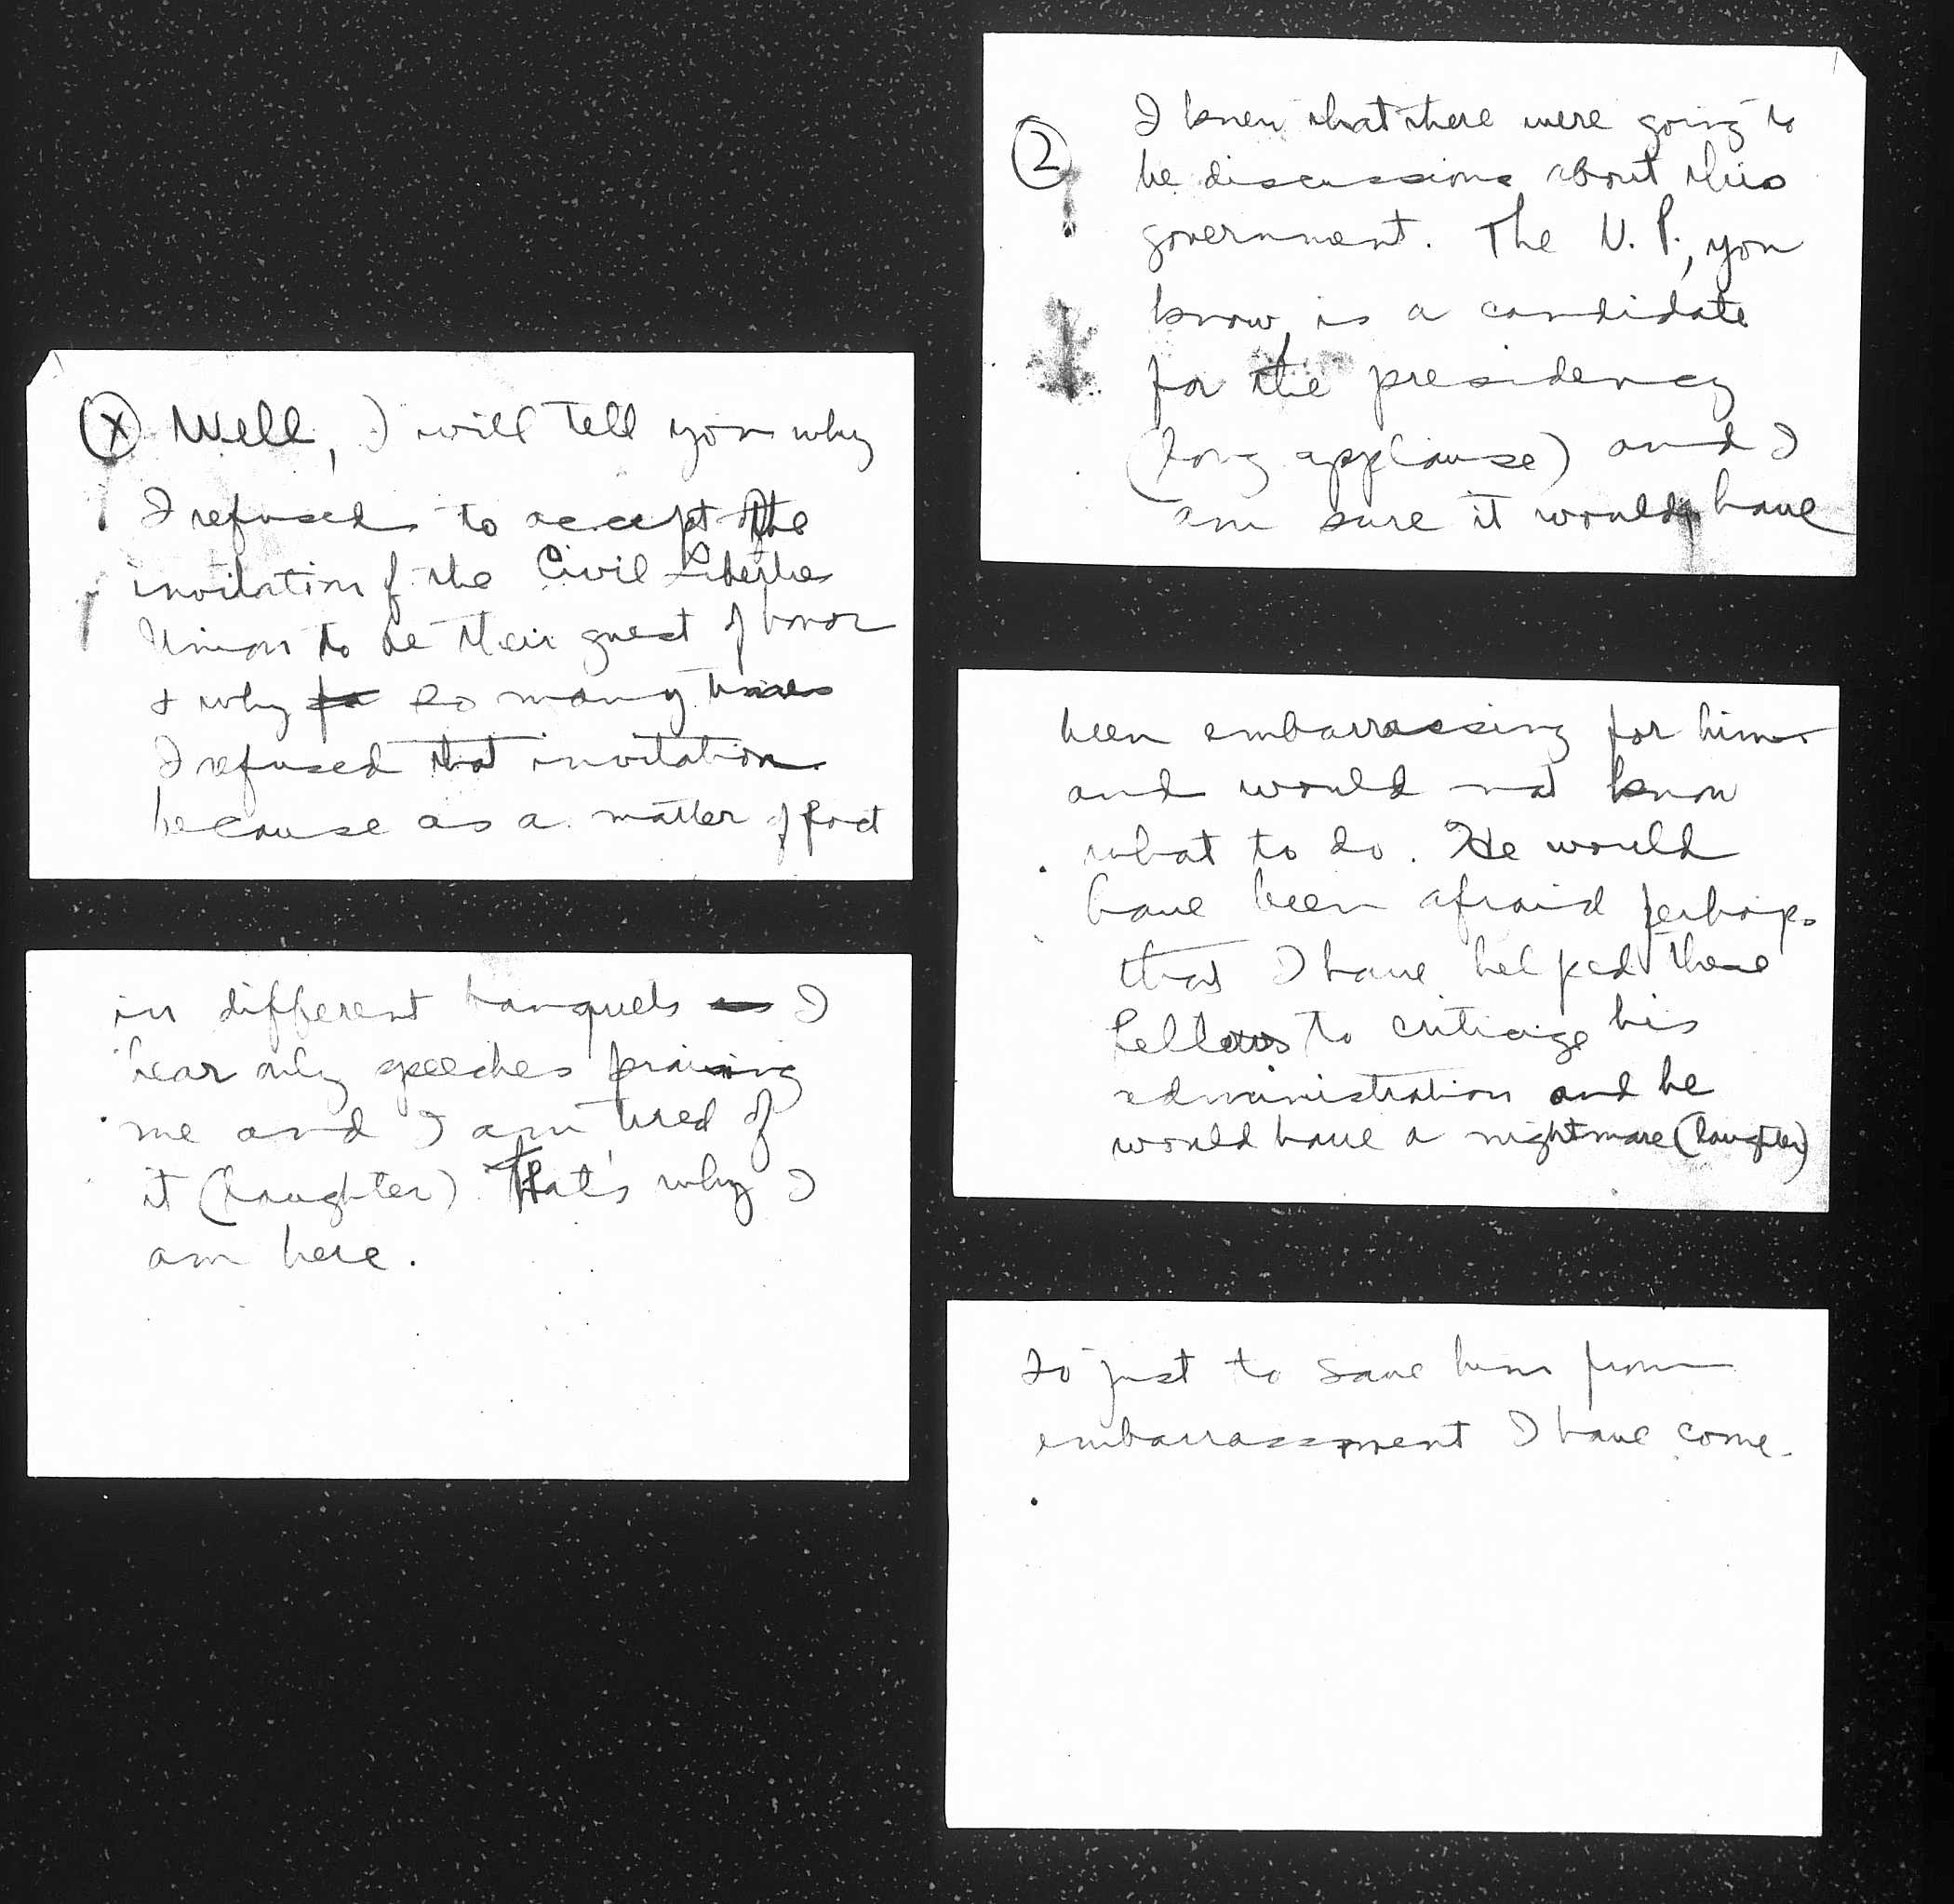 Ⓧ Well, I will tell you why
I refused to accept the
invitation of the Civil Liberties
Union to be their guest of honor
& why so many times
I refused that invitation
because as a matter of fact
in different banquets I
hear only speeches praising
me and I am tired of
it (laughter) That's why I
am here.
② I knew that there were going to
be discussions about this
government. The V. P., you
know, is a candidate
for the presidency
(long applause) and I
am sure it would have
been embarrassing for him
and would not know
what to do. He would
have been afraid perhaps
that I have helped these
fellows to criticize his
administration and he
would have a nightmare (laughter)
So just to save him from
embarrassment I have come.